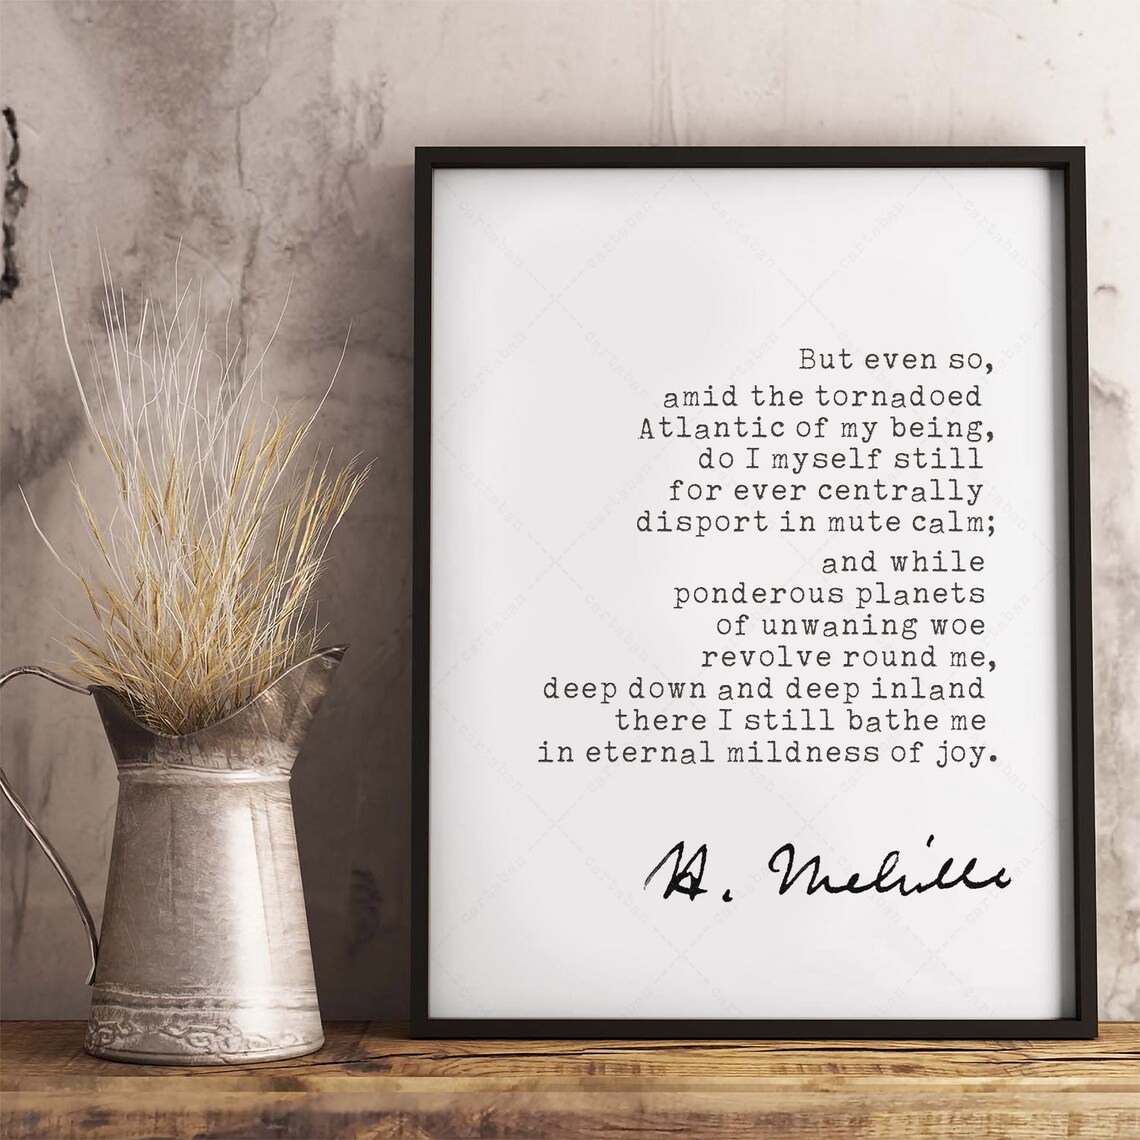 But even so,
amid the tornadoed
Atlantic of my being,
do I myself still
for ever centrally
disport in mute calm;
and while
ponderous planets
of unwaning woe
revolve round me,
deep down and deep inland
there I still bathe me
in eternal mildness of joy.
H. Melville
cartaban